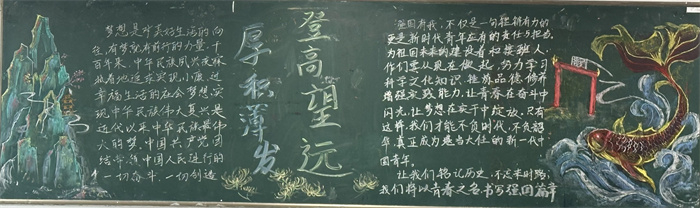 梦想是对美好生活的向
往,有梦就有前行的力量,千
百年来,中华民族夙兴夜寐
执着地追求实现小康,过
幸福生活的社会梦想,实
现中华民族伟大复兴是
近代以来中华民族最伟
大的梦,中国共产党团
结带领中国人民进行的
一切奋斗,一切创造
厚积薄发
登高望远
强国有我,不仅是一句铿锵有力的
更是新时代青年应有的责任与担当,
为祖国未来的建设者和接班人,
你们要从现在做起,努力学习
科学文化知识,锤炼品德修养
增强实践能力,让青春在奋斗中
闪光,让梦想在实干中绽放,只有
这样,我们才能不负时代,不负韶
华,真正成为堪当大任的新一代中
国青年。
让我们铭记历史,不忘来时路,
我们将以青春之名书写强国篇章